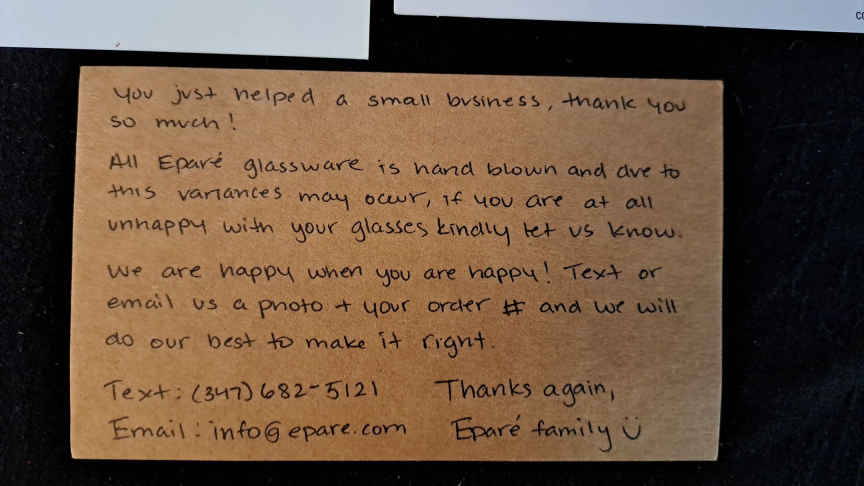 You just helped a small business, thank you
so much!
All Eparé glassware is hand blown and due to
this variances may occur, if you are at all
unhappy with your glasses kindly let us know.
We are happy when you are happy! Text or
email us a photo + your order # and we will
do our best to make it right.
Text: (347) 682-5121 Thanks again,
Email: info@epare.com Eparé family ü